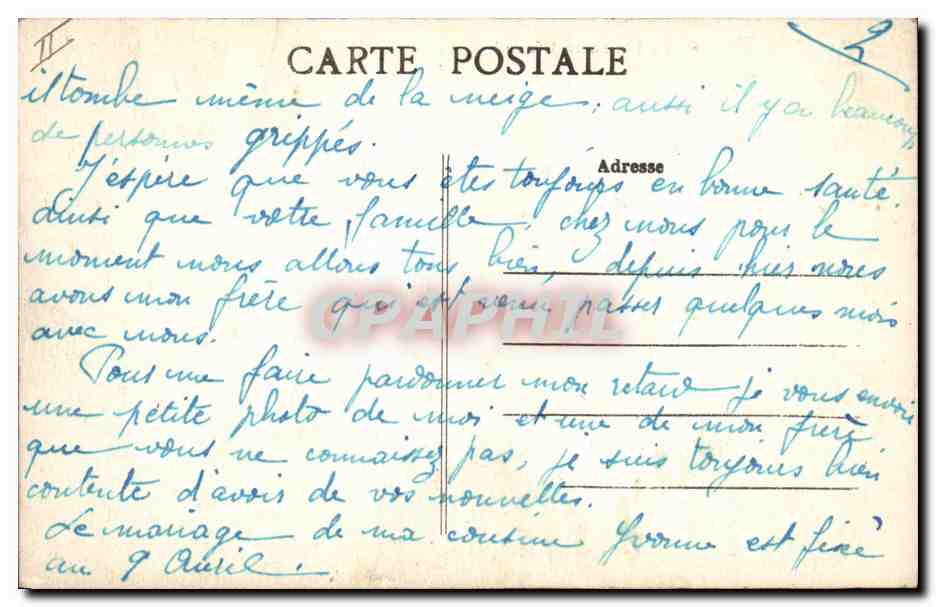 II
2
CARTE POSTALE
il tombe même de la neige, aussi il y a beaucoup
de personnes grippés.
Adresse
J'espère que vous êtes toujours en bonne santé
ainsi que votre famille, chez nous pour le
moment nous allons tous bien, depuis hier nous
avons mon frère qui est venu passer quelques mois
avec nous.
CPAPHIL
Pour me faire pardonner mon retard je vous envoie
une petite photo de moi et une de mon frère
que vous ne connaissez pas, je suis toujours bien
contente d'avoir de vos nouvelles.
Le mariage de ma cousine Yvonne est fixé
au 9 Avril.